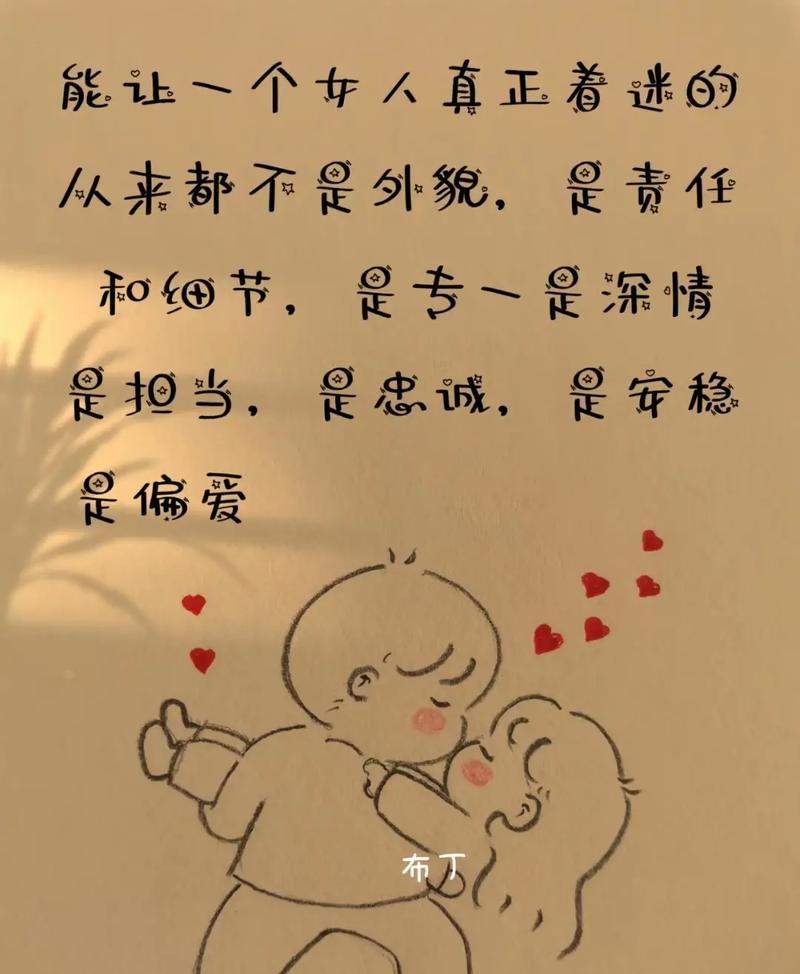 能让一个女人真正着迷的
从来都不是外貌，是责任
和细节，是专一是深情
是担当，是忠诚，是安稳
是偏爱
布丁